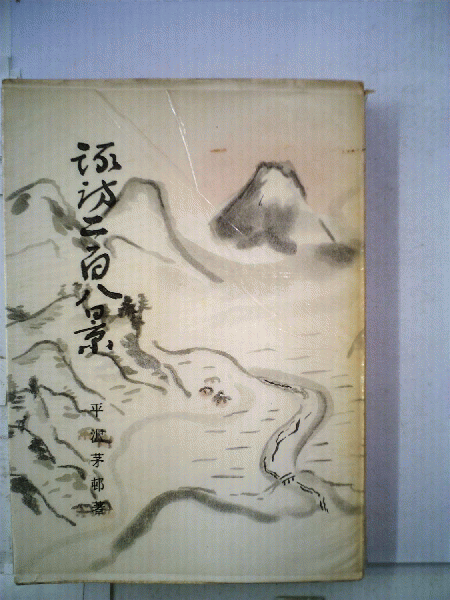 諏訪二百八景
平沢茅邨著